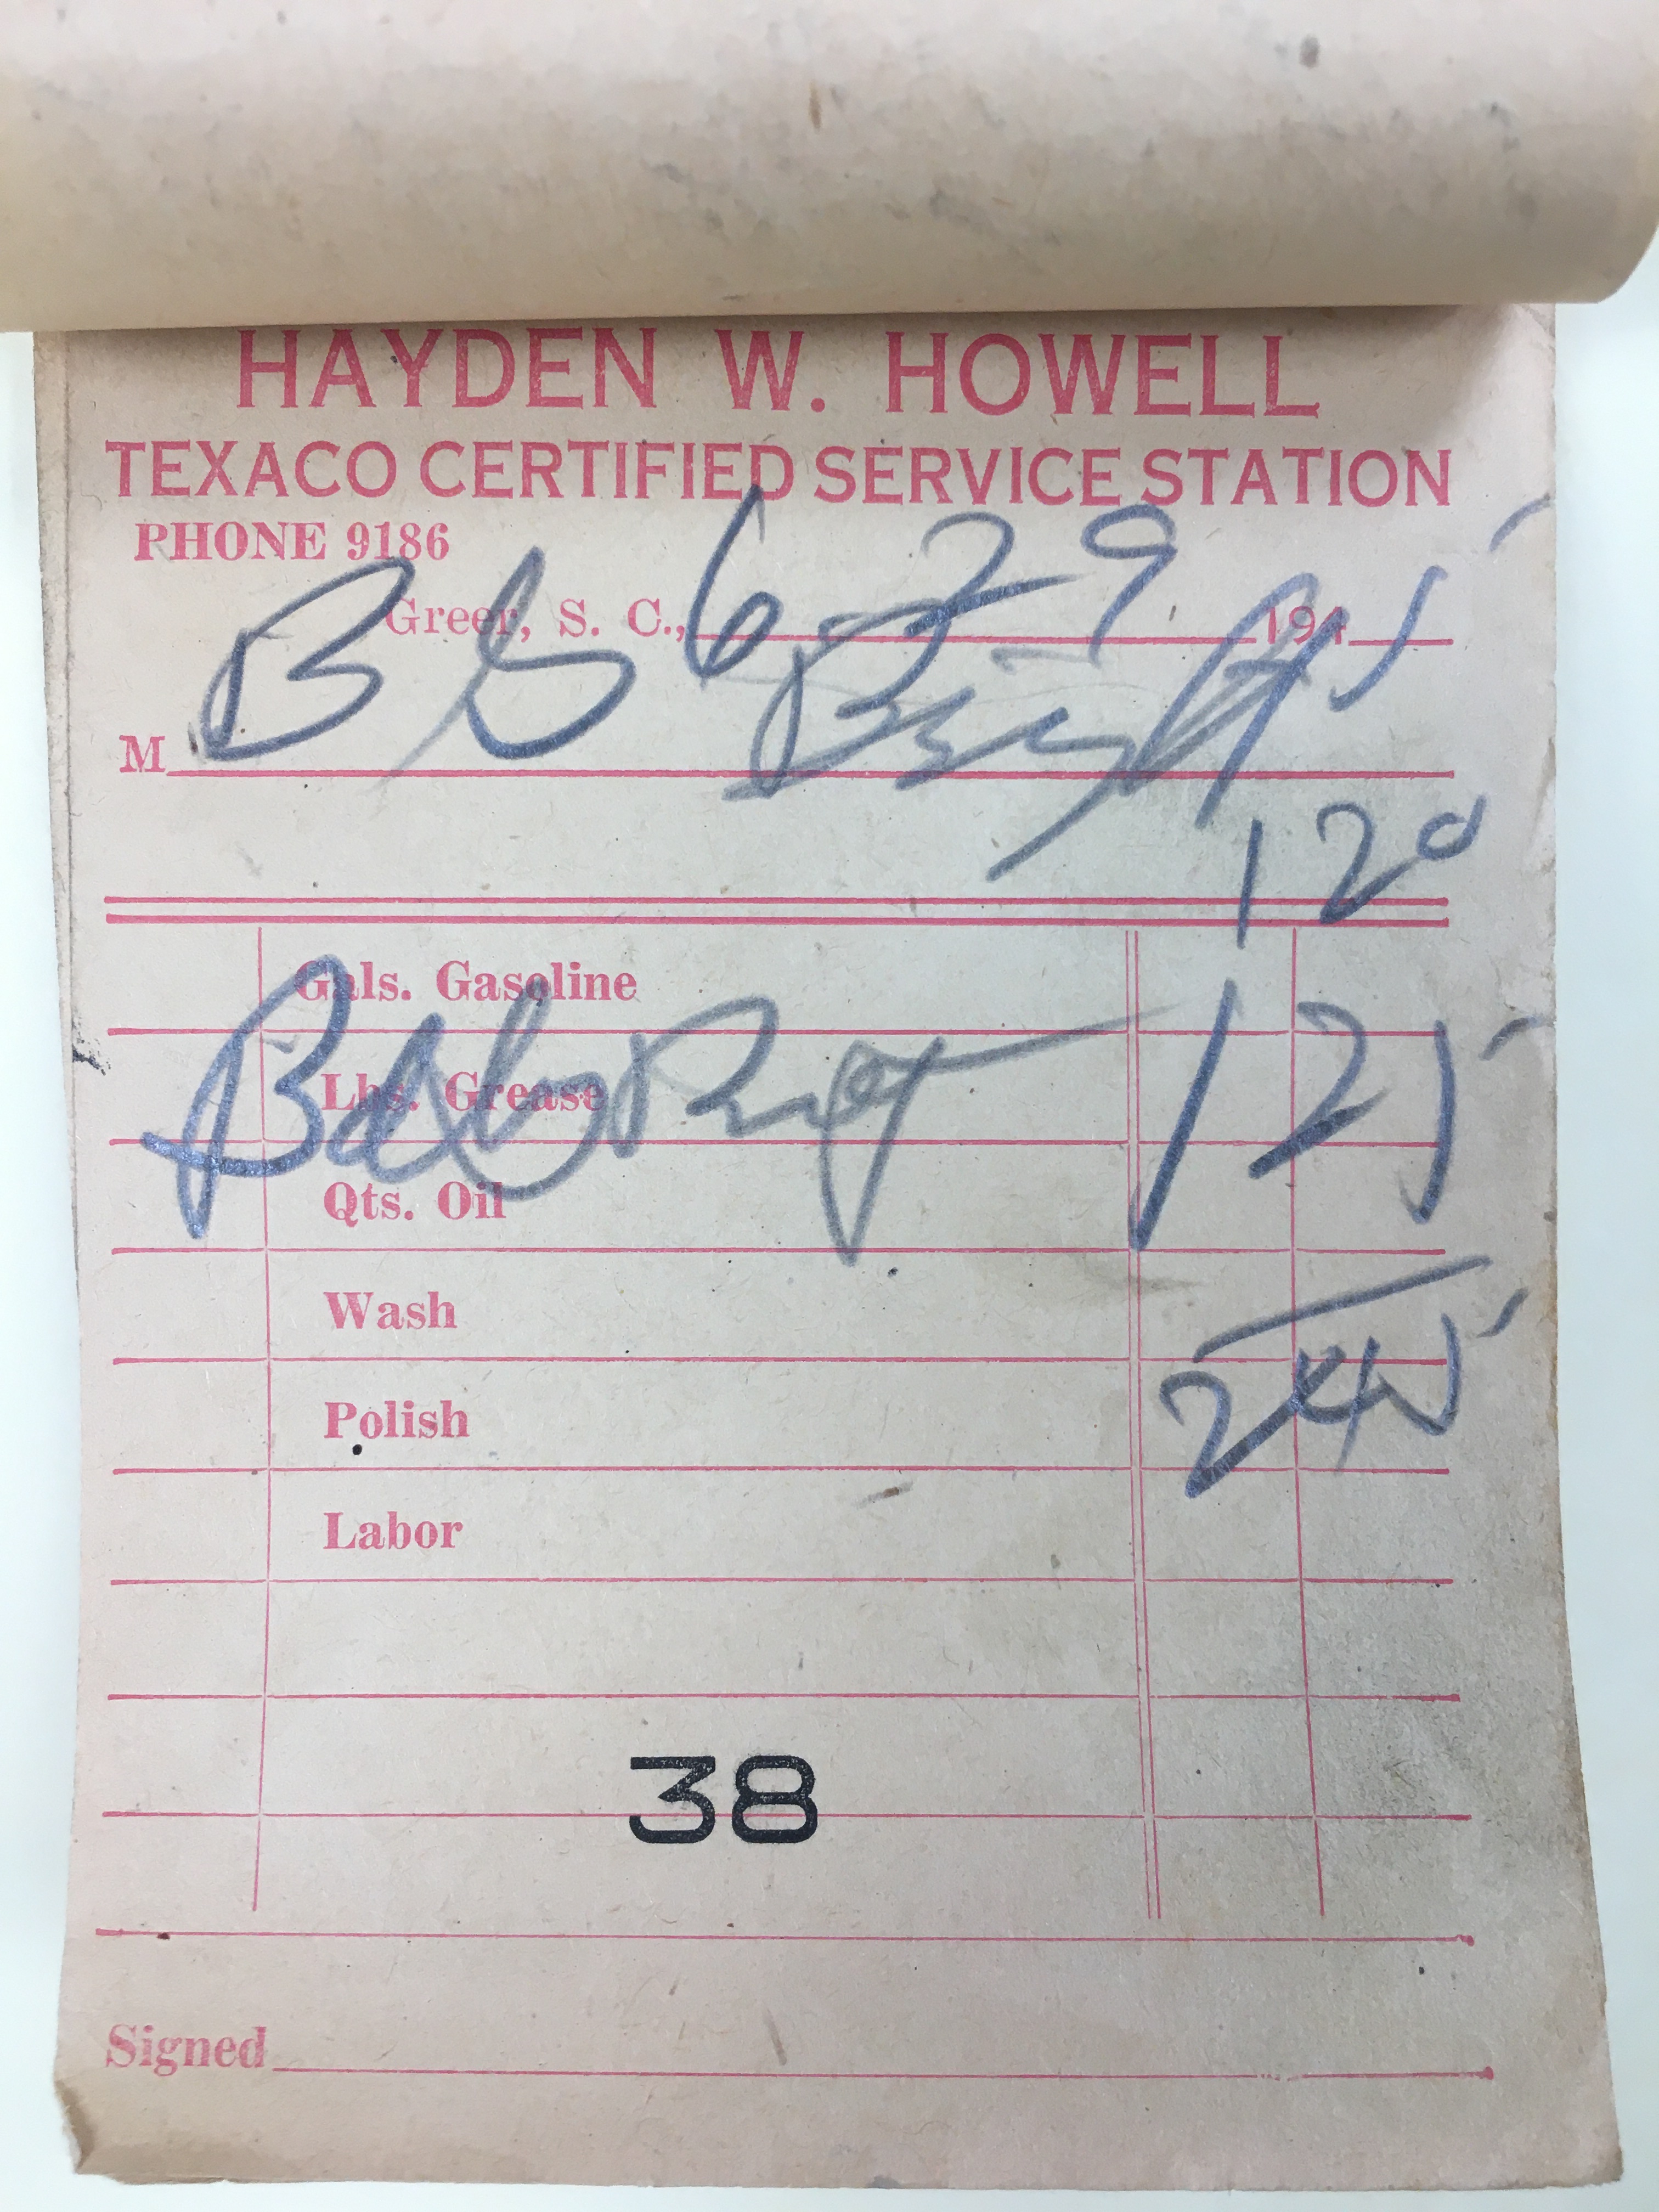 HAYDEN W. HOWELL
TEXACO CERTIFIED SERVICE STATION
PHONE 9186
Greer, S. C., 6-29 194
M
120
Gals. Gasoline
Lbs. Grease
125
Qts. Oil
Wash
245
Polish
Labor
38
Signed